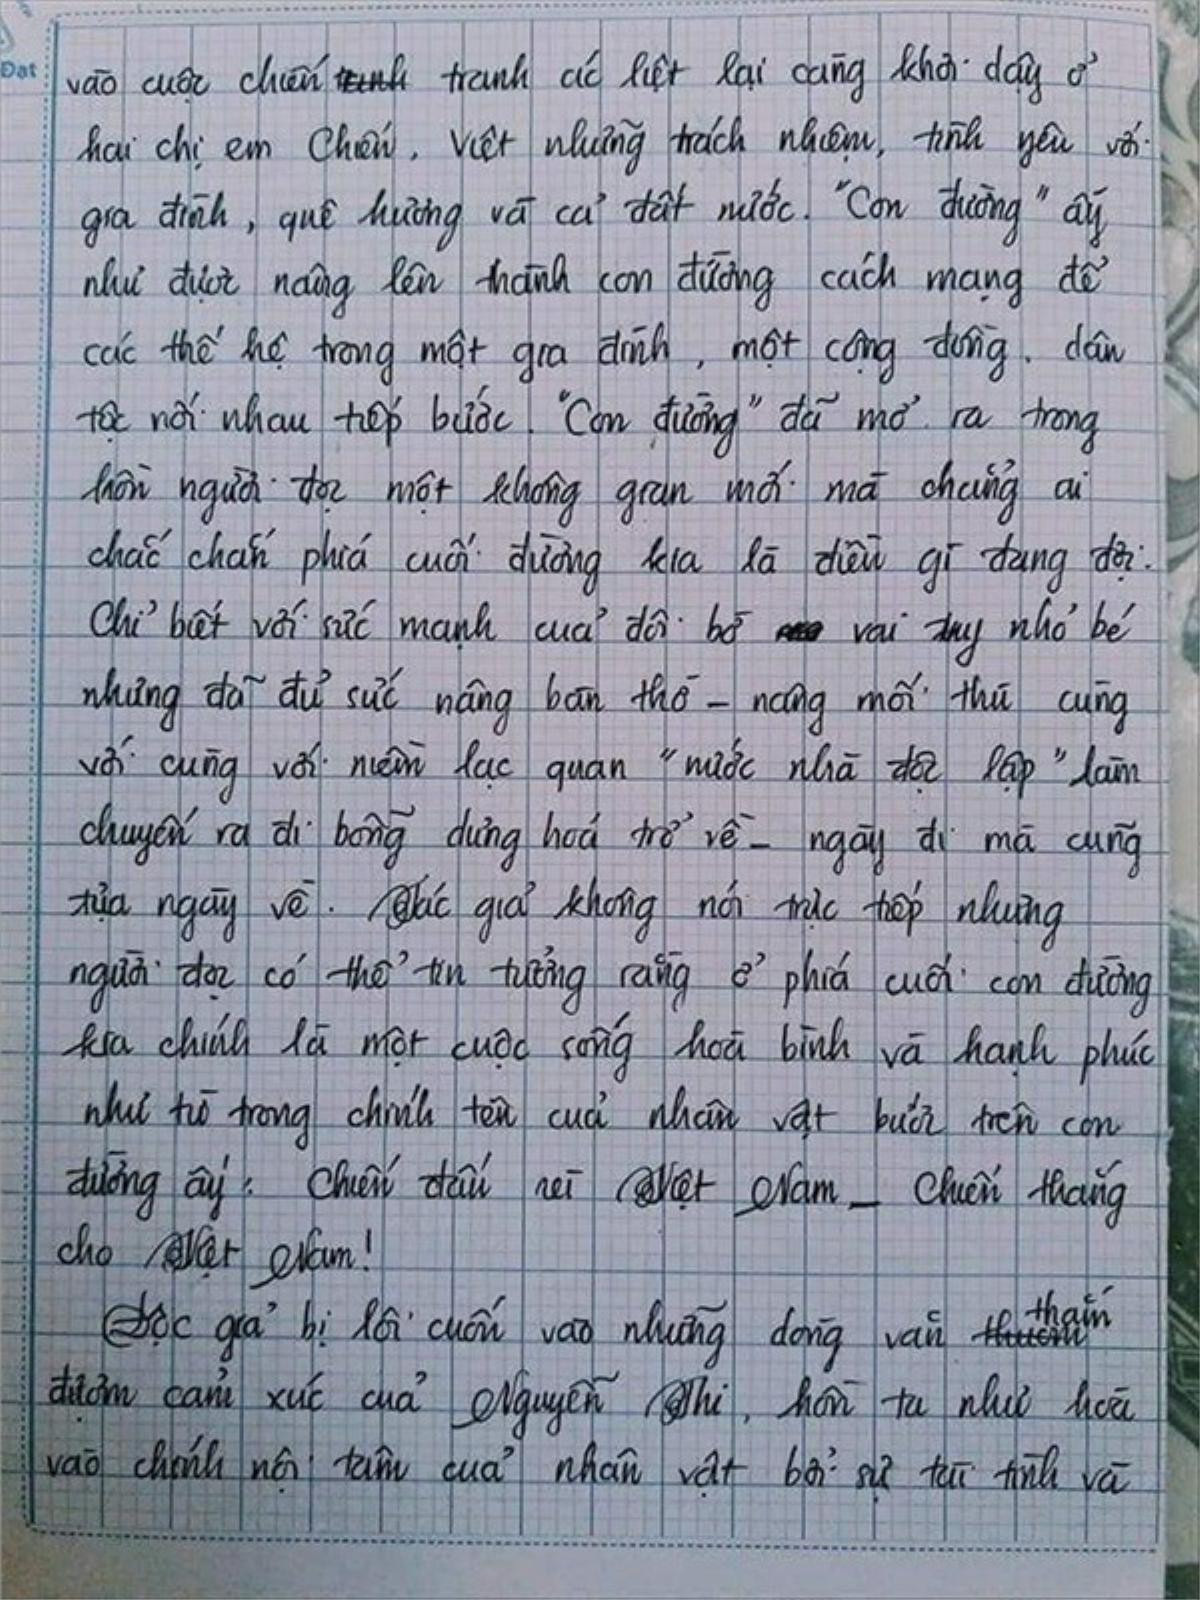 Đạt
vào cuộc chiến tranh ác liệt lại càng khơi dậy ở
hai chị em Chiến, Việt những trách nhiệm, tình yêu với
gia đình, quê hương và cả đất nước. "Con đường" ấy
như được nâng lên thành con đường cách mạng để
các thế hệ trong một gia đình, một cộng đồng, dân
tộc nối nhau tiếp bước. "Con đường" đã mở ra trong
lòng người đọc một không gian mới mà chẳng ai
chắc chắn phía cuối đường kia là điều gì đang đợi.
Chỉ biết với sức mạnh của đôi bờ vai tuy nhỏ bé
nhưng đã đủ sức nâng bàn thờ - nâng mối thù cùng
với cùng với niềm lạc quan "nước nhà độc lập" làm
chuyến ra đi bỗng dưng hoá trở về - ngày đi mà cũng
tựa ngày về. Tác giả không nói trực tiếp nhưng
người đọc có thể tin tưởng rằng ở phía cuối con đường
kia chính là một cuộc sống hoà bình và hạnh phúc
như từ trong chính tên của nhân vật bước trên con
đường ấy: Chiến đấu vì Việt Nam - Chiến thắng
cho Việt Nam!
Độc giả bị lôi cuốn vào những dòng văn thấm
đượm cảm xúc của Nguyễn Thi, hồn ta như hoà
vào chính nội tâm của nhân vật bởi sự tài tình và